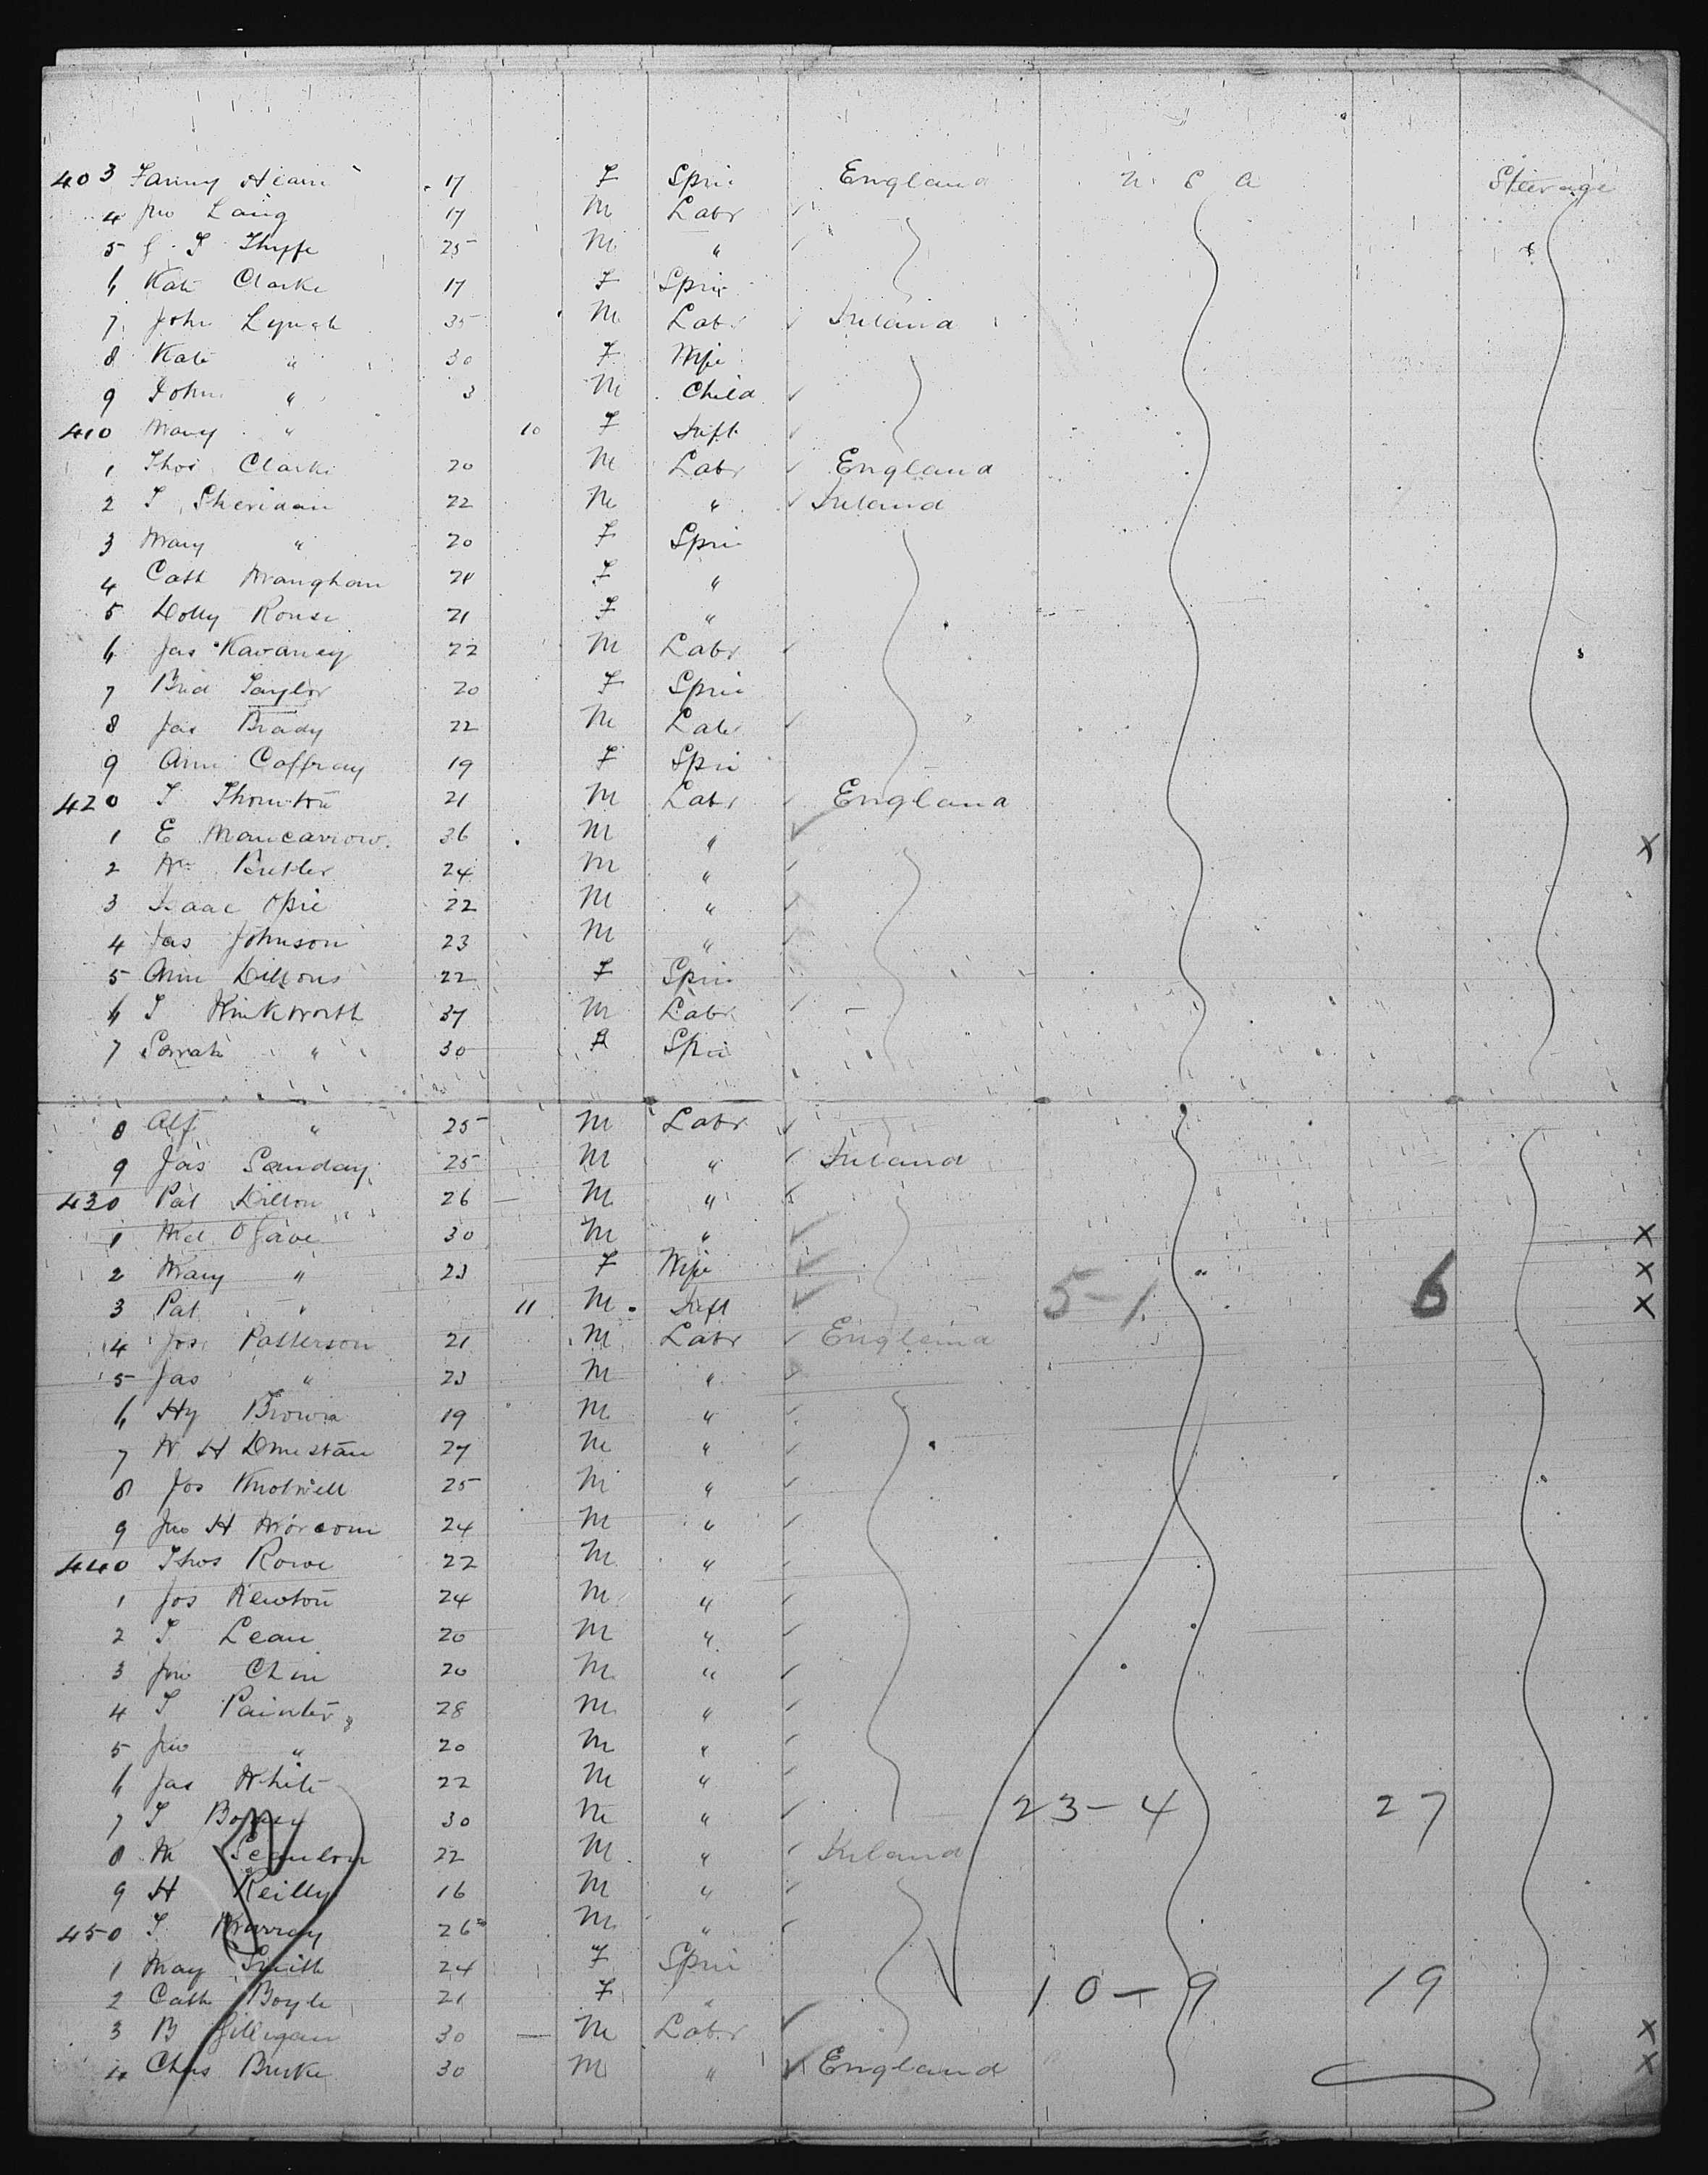 403 Fanny Hearn 17 F Spin England U S A Steerage
4 Jno Laing 17 M Labr
5 T Thyfe 25 M "
6 Kate Clarke 17 F Spin
7 John Lynch 35 M Labr Ireland
8 Kate " 30 F Wife
9 John " 3 M Child
410 Mary " 10 F Inft
1 Thos Clarke 20 M Labr England
2 T Sheridan 22 M " Ireland
3 Mary " 20 F Spin
4 Cath Mangham 24 F "
5 Dolly Rouse 21 F "
6 Jas Kavaney 22 M Labr
7 Brid Taylor 20 F Spin
8 Jas Brady 22 M Labr
9 Ann Caffray 19 F Spin
420 T Thornton 21 M Labr England
1 E Mancarrow 36 M " X
2 Wm Butler 24 M "
3 Isaac Opie 22 M "
4 Jas Johnson 23 M "
5 Ann Dillons 22 F Spin
6 T Winkworth 37 M Labr
7 Sarah " 30 F Spin
8 Alf " 25 M Labr
9 Jas Sanday 25 M " Ireland
430 Pat Dillon 26 M "
1 Mcl O'Gave 30 M " X
2 Mary " 23 F Wife X
3 Pat " 11 M Inft 5-1 6 X
4 Jos Patterson 21 M Labr England
5 Jas " 23 M "
6 Hy Brown 19 M "
7 W H 27 M "
8 Jos Knotwell 25 M "
9 Jno H Morcom 24 M "
440 Thos Rowe 22 M "
1 Jos Newton 24 M "
2 T Lean 20 M "
3 Jno Chin 20 M "
4 T Painter 28 M "
5 Jno " 20 M "
6 Jas White 22 M "
7 T 30 M " 23-4 27
8 M Scanlon 22 M " Ireland
9 H Reilly 16 M "
450 T Murray 26 M "
1 May Smith 24 F Spin
2 Cath Boyle 21 F " 10-9 19
3 B Gilligan 30 M Labr X
4 Chas Burke 30 M " England X